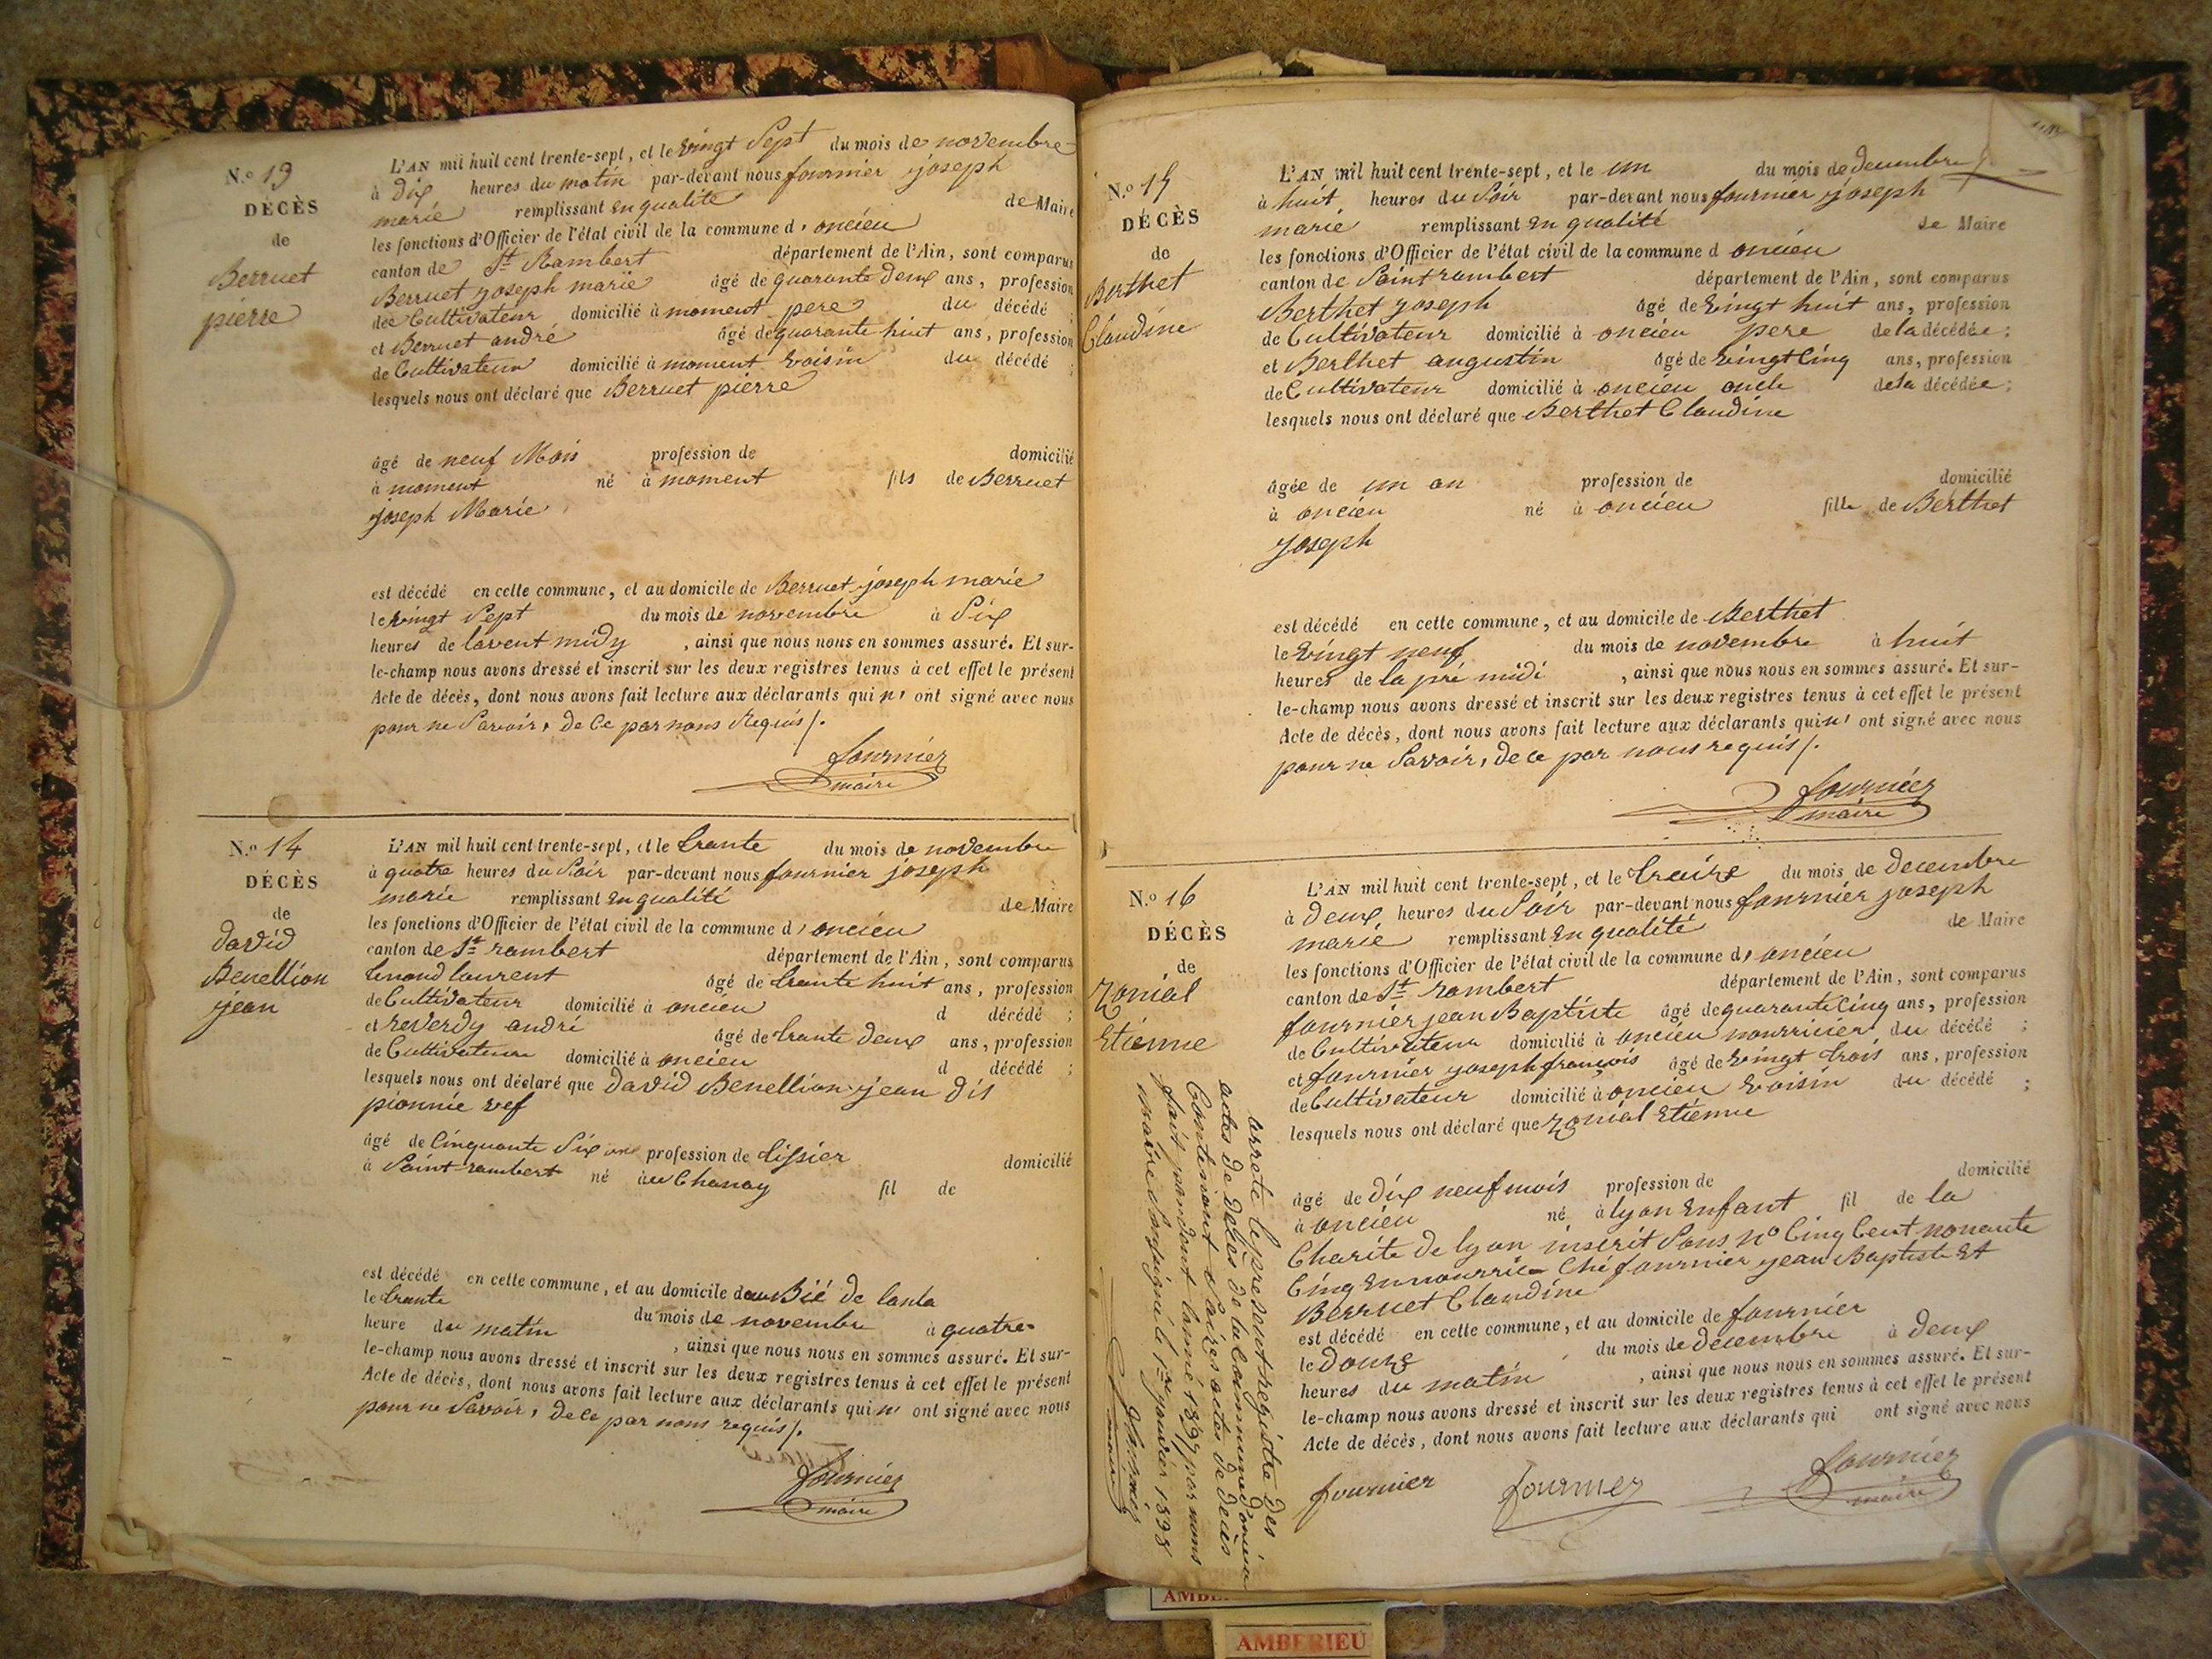 N.º 13
DÉCÈS
de
Berruet
pierre
L'AN mil huit cent trente-sept, et le vingt Sept du mois de novembre
à dix heures du matin par-devant nous fournier joseph
marie remplissant en qualité de Maire
les fonctions d'Officier de l'état civil de la commune d'oncieu
canton de St Rambert département de l'Ain, sont comparus
Berruet joseph marie âgé de quarante deux ans, profession
de Cultivateur domicilié à moment pere du décédé ;
et Berruet andré âgé de quarante huit ans, profession
de Cultivateur domicilié à moment voisin du décédé ;
lesquels nous ont déclaré que Berruet pierre
âgé de neuf Mois profession de domicilié
à moment né à moment fils de Berruet
joseph Marie
est décédé en cette commune, et au domicile de Berruet joseph marie
le vingt Sept du mois de novembre à Six
heures de lavent midy , ainsi que nous nous en sommes assuré. Et sur-
le-champ nous avons dressé et inscrit sur les deux registres tenus à cet effet le présent
Acte de décès, dont nous avons fait lecture aux déclarants qui n' ont signé avec nous
pour ne Savoir, de Ce par nous Requis /.
fournier
maire
N.º 14
DÉCÈS
de
david
Benellion
jean
L'AN mil huit cent trente-sept, et le trante du mois de novembre
à quatre heures du Soir par-devant nous fournier joseph
marie remplissant en qualité de Maire
les fonctions d'Officier de l'état civil de la commune d'oncieu
canton de St rambert département de l'Ain, sont comparus
laurent âgé de trante huit ans, profession
de Cultivateur domicilié à oncieu d décédé ;
et reverdy andré âgé de trante deux ans, profession
de Cultivateur domicilié à oncieu d décédé ;
lesquels nous ont déclaré que david Benellion jean dit
pionnie vef
âgé de Cinquante Six ans profession de tissier domicilié
à Saint rambert né au Chanay fil de
est décédé en cette commune, et au domicile
le trante du mois de novembre à quatre
heure du matin , ainsi que nous nous en sommes assuré. Et sur-
le-champ nous avons dressé et inscrit sur les deux registres tenus à cet effet le présent
Acte de décès, dont nous avons fait lecture aux déclarants qui n' ont signé avec nous
pour ne Savoir, de Ce par nous requis /.
fournier
maire
N.º 15
DÉCÈS
de
Berthet
Claudine
L'AN mil huit cent trente-sept, et le un du mois de decembre
à huit heures du Soir par-devant nous fournier joseph
marie remplissant en qualité de Maire
les fonctions d'Officier de l'état civil de la commune d oncieu
canton de Saint rambert département de l'Ain, sont comparus
Berthet joseph âgé de vingt huit ans, profession
de Cultivateur domicilié à oncieu pere de la décédée ;
et Berthet augustin âgé de vingt Cinq ans, profession
de Cultivateur domicilié à oncieu oncle de la décédée ;
lesquels nous ont déclaré que Berthet Claudine
âgée de un an profession de domicilié
à oncieu né à oncieu fille de Berthet
joseph
est décédé en cette commune, et au domicile de Berthet
le vingt neuf du mois de novembre à huit
heures de la pré midi , ainsi que nous nous en sommes assuré. Et sur-
le-champ nous avons dressé et inscrit sur les deux registres tenus à cet effet le présent
Acte de décès, dont nous avons fait lecture aux déclarants qui n' ont signé avec nous
pour ne Savoir, de ce par nous requis /.
fournier
maire
N.º 16
DÉCÈS
de
zonial
Etienne
L'AN mil huit cent trente-sept, et le traize du mois de decembre
à deux heures du Soir par-devant nous fournier joseph
marie remplissant en qualité de Maire
les fonctions d'Officier de l'état civil de la commune d'oncieu
canton de St rambert département de l'Ain, sont comparus
fournier jean Baptiste âgé de quarante Cinq ans, profession
de Cultivateur domicilié à oncieu nourricier du décédé ;
et fournier joseph françois âgé de vingt trois ans, profession
de Cultivateur domicilié à oncieu voisin du décédé ;
lesquels nous ont déclaré que zonial Etienne
âgé de dix neuf mois profession de domicilié
à oncieu né à lyon Enfant fil de la
Charité de lyon inscrit Sous no Cinq Cent nonante
Cinq En nourrice Ché fournier jean Baptiste Et
Berruet Claudine
est décédé en cette commune, et au domicile de fournier
le douze du mois de decembre à deux
heures du matin , ainsi que nous nous en sommes assuré. Et sur-
le-champ nous avons dressé et inscrit sur les deux registres tenus à cet effet le présent
Acte de décès, dont nous avons fait lecture aux déclarants qui ont signé avec nous
fournier fournier fournier
maire
arrete le present registre des
actes de deces de la commune d'oncieu
Contenant Saizes actes de deces
fait pandant lanné 1837 par nous
maire Sousigné le 1er janvier 1838
fournier
maire
AMBERIEU